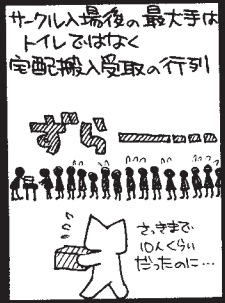 サークル入場後の最大手は
トイレではなく
宅配搬入受取の行列
ずらーーー
さっきまで
10人くらい
だったのに…